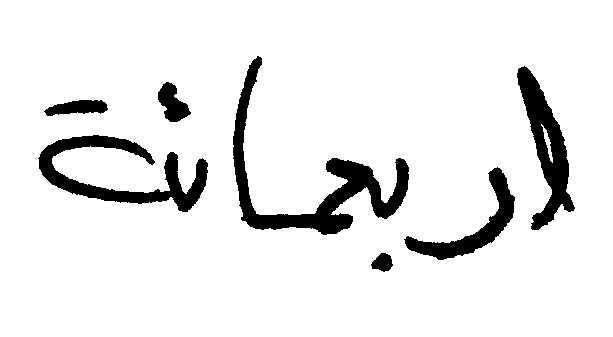 اربعمائة